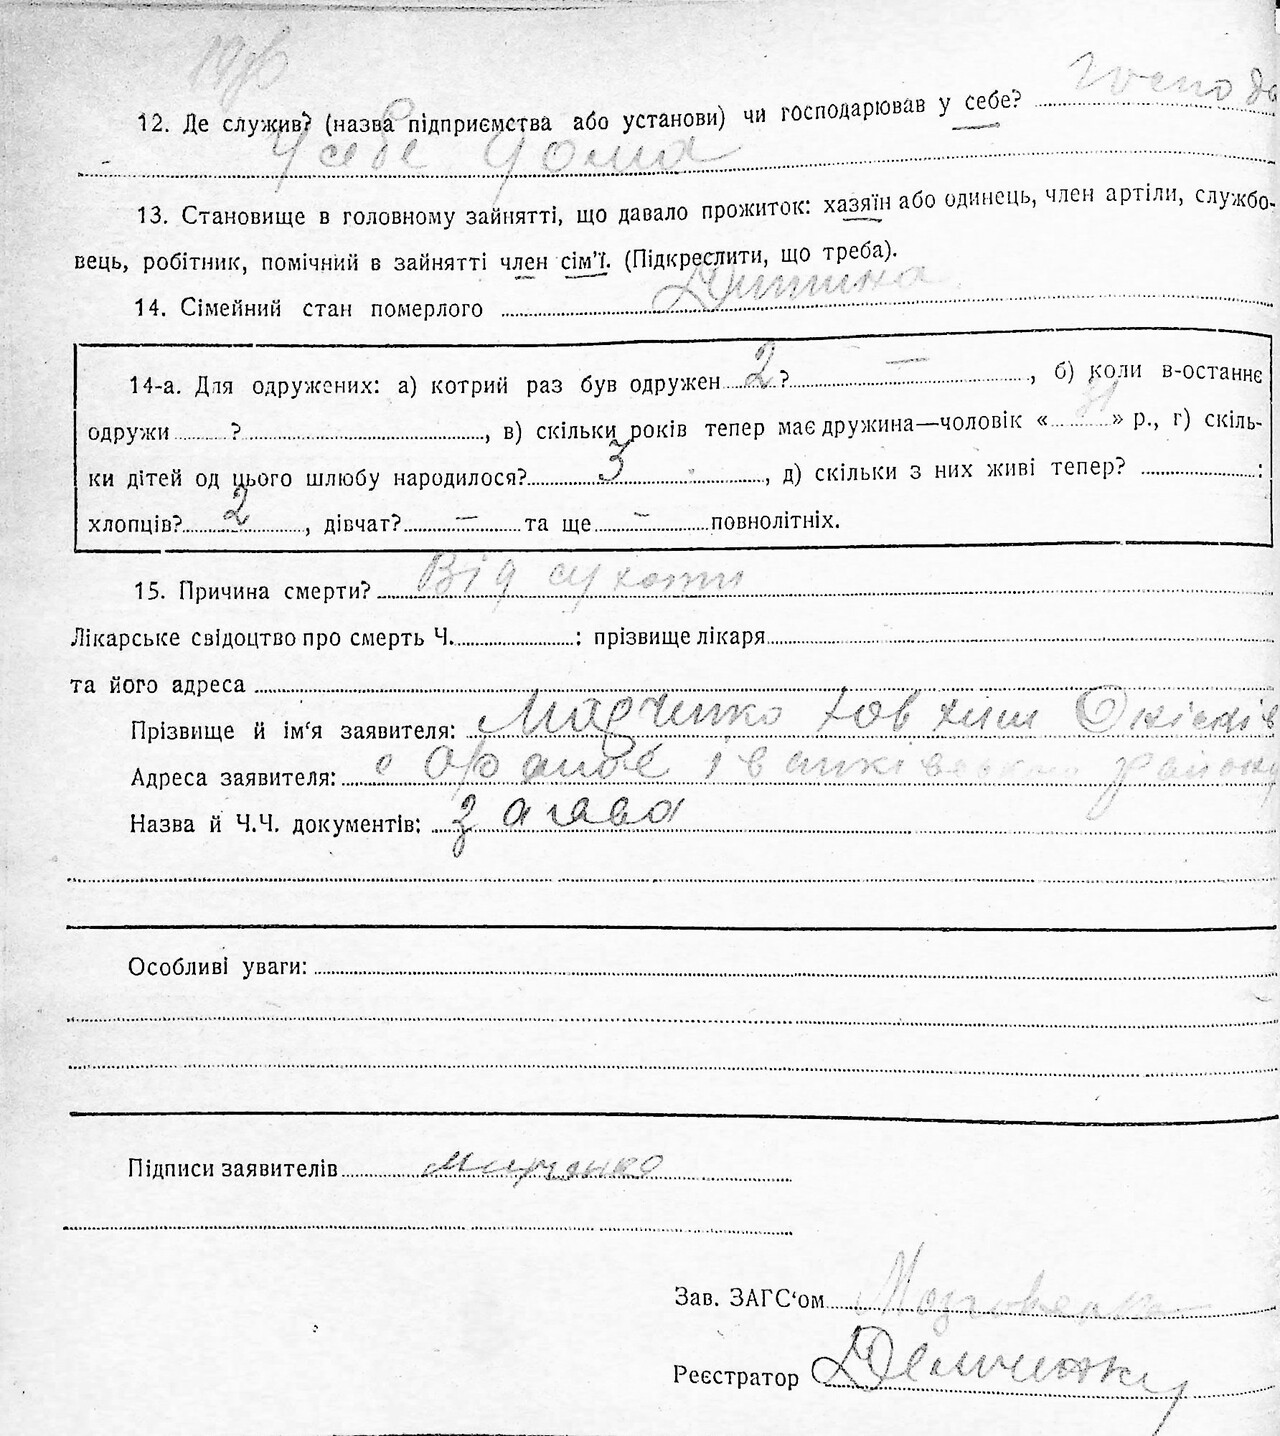 12. Де служив? (назва підприємства або установи) чи господарював у себе? господа
у себе дома
13. Становище в головному зайнятті, що давало прожиток: хазяїн або одинець, член артіли, службо-
вець, робітник, помічний в зайнятті член сім'ї. (Підкреслити, що треба).
14. Сімейний стан померлого Дитина
14-а. Для одружених: а) котрий раз був одружен 2 ? —, б) коли в-останнє
одружи ?, в) скільки років тепер має дружина—чоловік « » р., г) скіль-
ки дітей од цього шлюбу народилося? 3, д) скільки з них живі тепер? :
хлопців? 2, дівчат? — та ще — повнолітніх.
15. Причина смерти? Від сухоти
Лікарське свідоцтво про смерть Ч. : прізвище лікаря
та його адреса
Прізвище й ім'я заявителя: Марченко
Адреса заявителя: с Іванківського району
Назва й Ч.Ч. документів: заява
Особливі уваги:
Підписи заявителів Марченко
Зав. ЗАГС'ом
Реєстратор